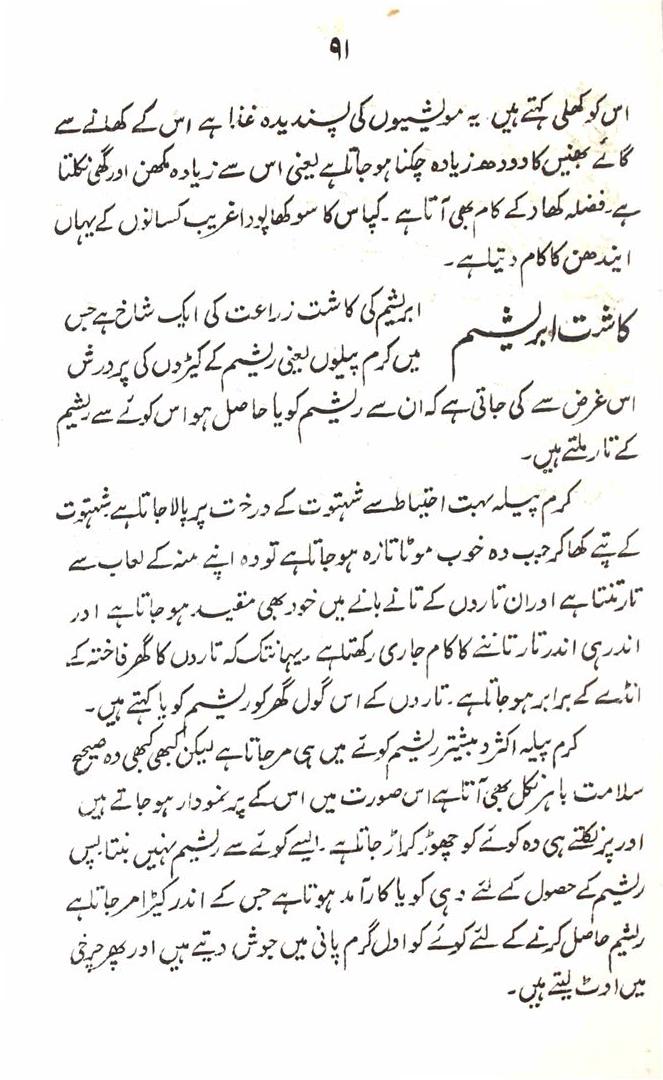 ۹۱
اس کو کھلی کہتے ہیں۔ یہ مویشیوں کی پسندیدہ غذا ہے اس کے کھانے سے
گائے بھینس کا دودھ زیادہ چکنا ہو جاتا ہے یعنی اس سے زیادہ مکھن اور گھی نکلتا
ہے۔ فضلہ کھاد کے کام بھی آتا ہے۔ کپاس کا سوکھا پودا غریب کسانوں کے یہاں
ایندھن کا کام دیتا ہے۔
کاشت ابریشم
ابریشم کی کاشت زراعت کی ایک شاخ ہے جس
میں کرم پیلوں یعنی ریشم کے کیڑوں کی پرورش
اس غرض سے کی جاتی ہے کہ ان سے ریشم کویا حاصل ہو اس کوئے سے ریشم
کے تار ملتے ہیں۔
کرم پیلہ بہت احتیاط سے شہتوت کے درخت پر پالا جاتا ہے شہتوت
کے پتے کھا کر جب وہ خوب موٹا تازہ ہو جاتا ہے تو وہ اپنے منہ کے لعاب سے
تار تنتا ہے اور ان تاروں کے تانے بانے میں خود بھی مقید ہو جاتا ہے اور
اندر ہی اندر تار تاننے کا کام جاری رکھتا ہے۔ یہانتک کہ تاروں کا گھر فاختہ کے
انڈے کے برابر ہو جاتا ہے۔ تاروں کے اس گول گھر کو ریشم کویا کہتے ہیں۔
کرم پیلہ اکثر و بیشتر ریشم کوئے میں ہی مر جاتا ہے لیکن کبھی کبھی وہ صحیح
سلامت باہر نکل بھی آتا ہے اس صورت میں اس کے پر نمودار ہو جاتے ہیں
اور پر نکلتے ہی وہ کوئے کو چھوڑ کر اڑ جاتا ہے۔ ایسے کوئے سے ریشم نہیں بنتا پس
ریشم کے حصول کے لئے وہی کویا کارآمد ہوتا ہے جس کے اندر کیڑا مر جاتا ہے
ریشم حاصل کرنے کے لئے کوئے کو اول گرم پانی میں جوش دیتے ہیں اور پھر چرخی
میں اوٹ لیتے ہیں۔